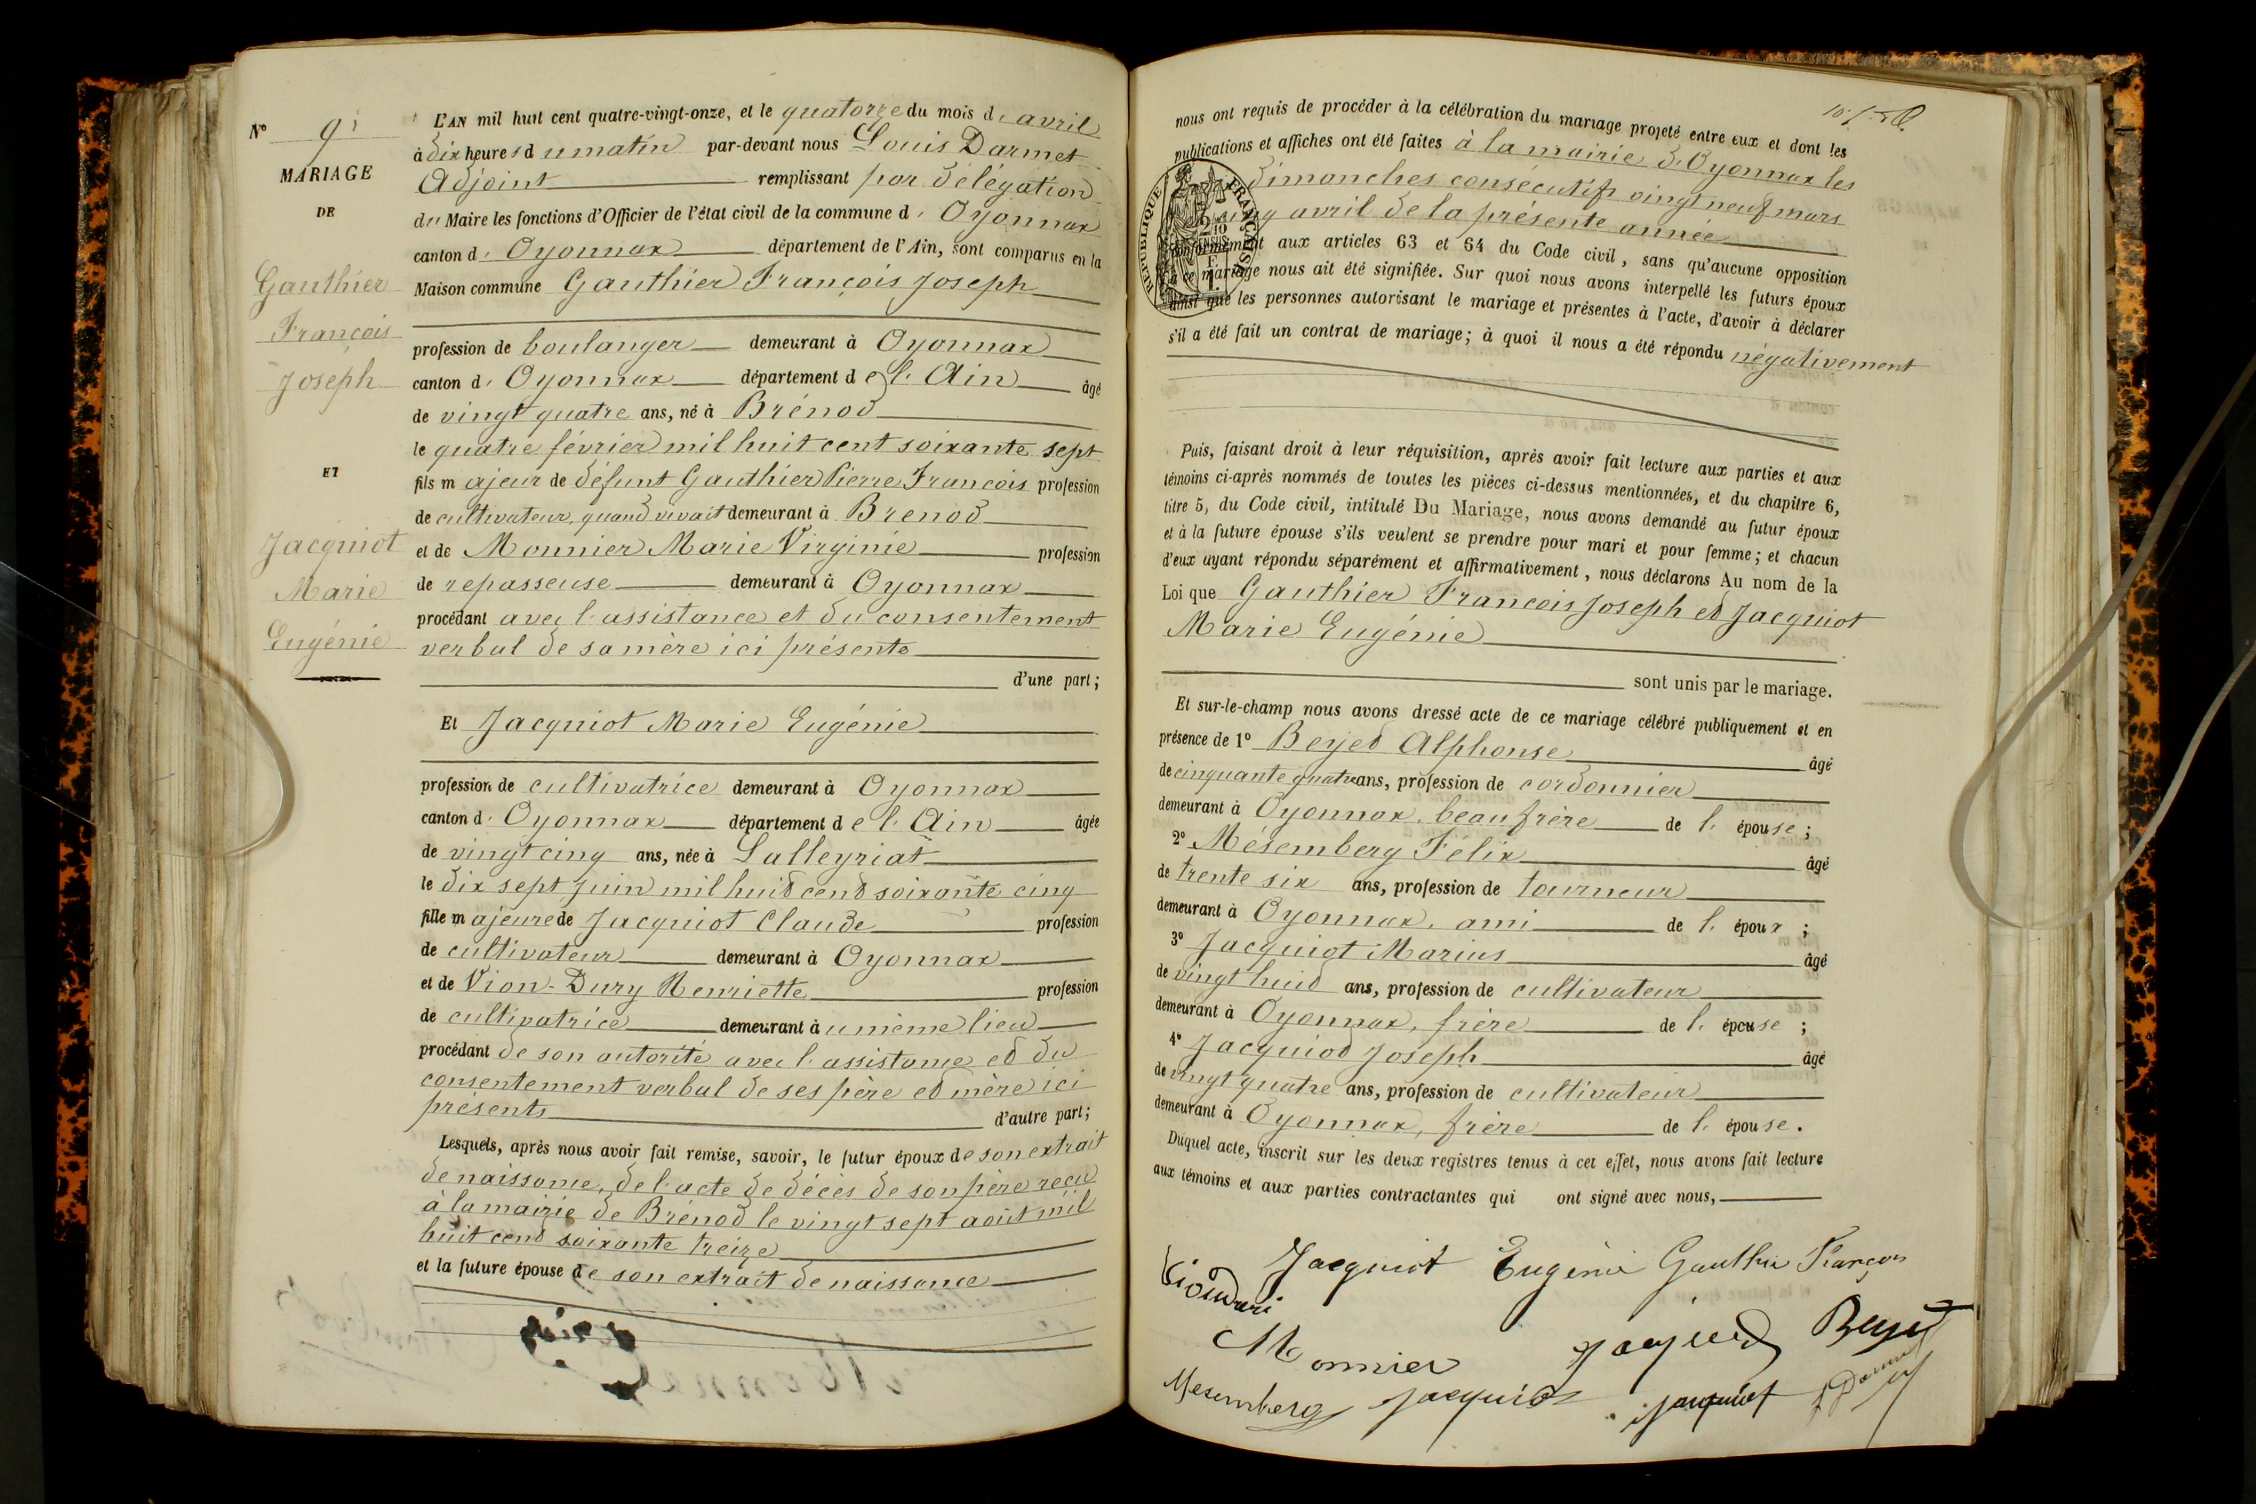 N° 9
MARIAGE
DE
Gauthier
François
Joseph
ET
Jacquiot
Marie
Eugénie
L'AN mil huit cent quatre-vingt-onze, et le quatorze du mois d'avril
à dix heures du matin par-devant nous Louis Darmet
Adjoint remplissant par délégation
du Maire les fonctions d'Officier de l'état civil de la commune d'Oyonnax
canton d'Oyonnax département de l'Ain, sont comparus en la
Maison commune Gauthier François Joseph
profession de boulanger demeurant à Oyonnax
canton d'Oyonnax département de l'Ain âgé
de vingt quatre ans, né à Brénod
le quatre février mil huit cent soixante sept
fils majeur de défunt Gauthier Pierre François profession
de cultivateur, quand vivait demeurant à Brenod
et de Monnier Marie Virginie profession
de repasseuse demeurant à Oyonnax
procédant avec l'assistance et du consentement
verbal de sa mère ici présente
d'une part;
Et Jacquiot Marie Eugénie
profession de cultivatrice demeurant à Oyonnax
canton d'Oyonnax département de l'Ain âgée
de vingt cinq ans, née à Lalleyriat
le dix sept juin mil huit cent soixante cinq
fille majeure de Jacquiot Claude profession
de cultivateur demeurant à Oyonnax
et de Vion-Dury Henriette profession
de cultivatrice demeurant au même lieu
procédant de son autorité avec l'assistance et du
consentement verbal de ses père et mère ici
présents d'autre part;
Lesquels, après nous avoir fait remise, savoir, le futur époux de son extrait
de naissance, de l'acte de décès de son père reçu
à la mairie de Brénod le vingt sept août mil
huit cent soixante treize
et la future épouse de son extrait de naissance
nous ont requis de procéder à la célébration du mariage projeté entre eux et dont les
publications et affiches ont été faites à la mairie d'Oyonnax les
dimanches consécutifs vingt neuf mars
cinq avril de la présente année
conformément aux articles 63 et 64 du Code civil, sans qu'aucune opposition
à ce mariage nous ait été signifiée. Sur quoi nous avons interpellé les futurs époux
ainsi que les personnes autorisant le mariage et présentes à l'acte, d'avoir à déclarer
s'il a été fait un contrat de mariage; à quoi il nous a été répondu négativement
RÉPUBLIQUE FRANÇAISE
Puis, faisant droit à leur réquisition, après avoir fait lecture aux parties et aux
témoins ci-après nommés de toutes les pièces ci-dessus mentionnées, et du chapitre 6,
titre 5, du Code civil, intitulé Du Mariage, nous avons demandé au futur époux
et à la future épouse s'ils veulent se prendre pour mari et pour femme; et chacun
d'eux ayant répondu séparément et affirmativement, nous déclarons Au nom de la
Loi que Gauthier François Joseph et Jacquiot
Marie Eugénie
sont unis par le mariage.
Et sur-le-champ nous avons dressé acte de ce mariage célébré publiquement et en
présence de 1° Beyet Alphonse âgé
de cinquante quatre ans, profession de cordonnier
demeurant à Oyonnax, beau frère de l'épouse;
2° Mésemberg Félix âgé
de trente six ans, profession de tourneur
demeurant à Oyonnax, ami de l'époux;
3° Jacquiot Marius âgé
de vingt huit ans, profession de cultivateur
demeurant à Oyonnax, frère de l'épouse;
4° Jacquiod Joseph âgé
de vingt quatre ans, profession de cultivateur
demeurant à Oyonnax, frère de l'épouse.
Duquel acte, inscrit sur les deux registres tenus à cet effet, nous avons fait lecture
aux témoins et aux parties contractantes qui ont signé avec nous,
Jacquiot Eugénie Gauthier François
Monnier Beyet
Mesemberg Jacquiot Jacquiot